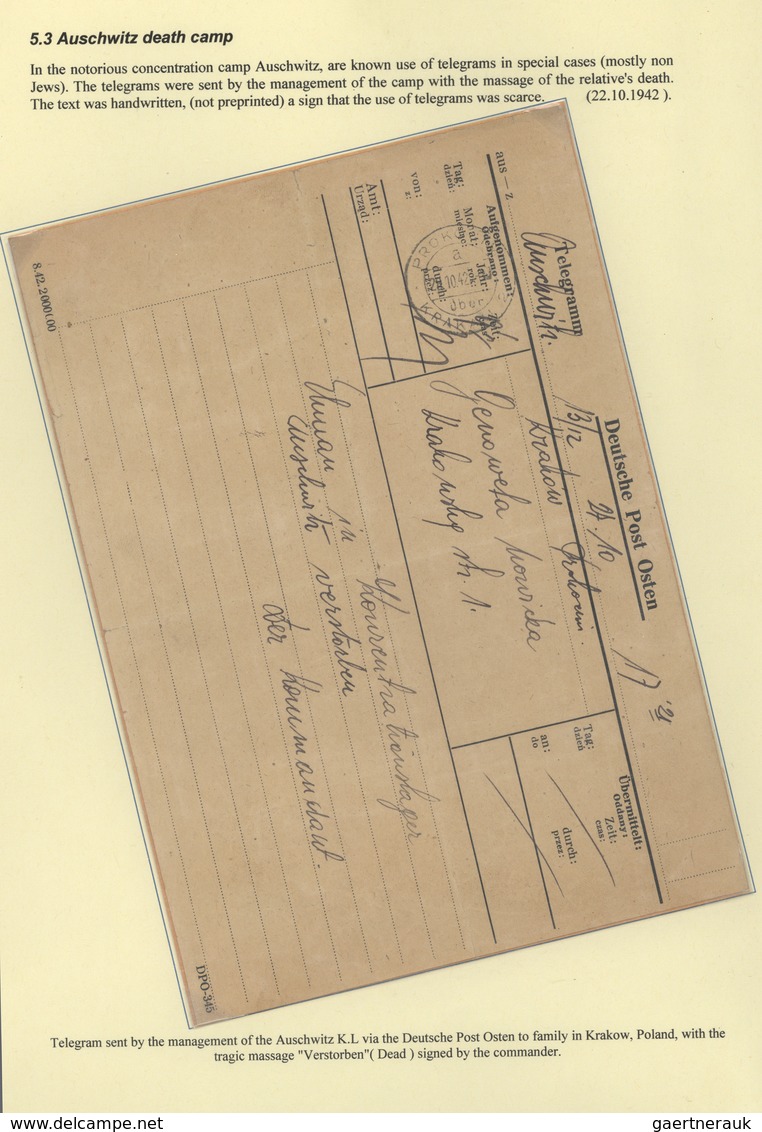 5.3 Auschwitz death camp
In the notorious concentration camp Auschwitz, are known use of telegrams in special cases (mostly non
Jews). The telegrams were sent by the management of the camp with the massage of the relative's death.
The text was handwritten, (not preprinted) a sign that the use of telegrams was scarce. (22.10.1942 ).
Telegramm
Deutsche Post Osten
aus — z
Auschwitz.
13/2
27. 10
17
21
Krakau
Aufgenommen:
Odebrano:
Tag: Monat: Jahr: Zeit:
dzień: miesiąc: rok:
von: durch:
z: przez:
Amt:
Urząd:
Kraków
Genowefa
Krakowska 1.
Übermittelt:
Oddany:
Tag: Zeit:
dzień czas:
an: durch:
do przez:
in Konzentrationslager
Auschwitz verstorben
Der Kommandant.
8.42.200000
DPO-345
Telegram sent by the management of the Auschwitz K.L via the Deutsche Post Osten to family in Krakow, Poland, with the
tragic massage "Verstorben"( Dead ) signed by the commander.
www.delcampe.net
gaertnerauk